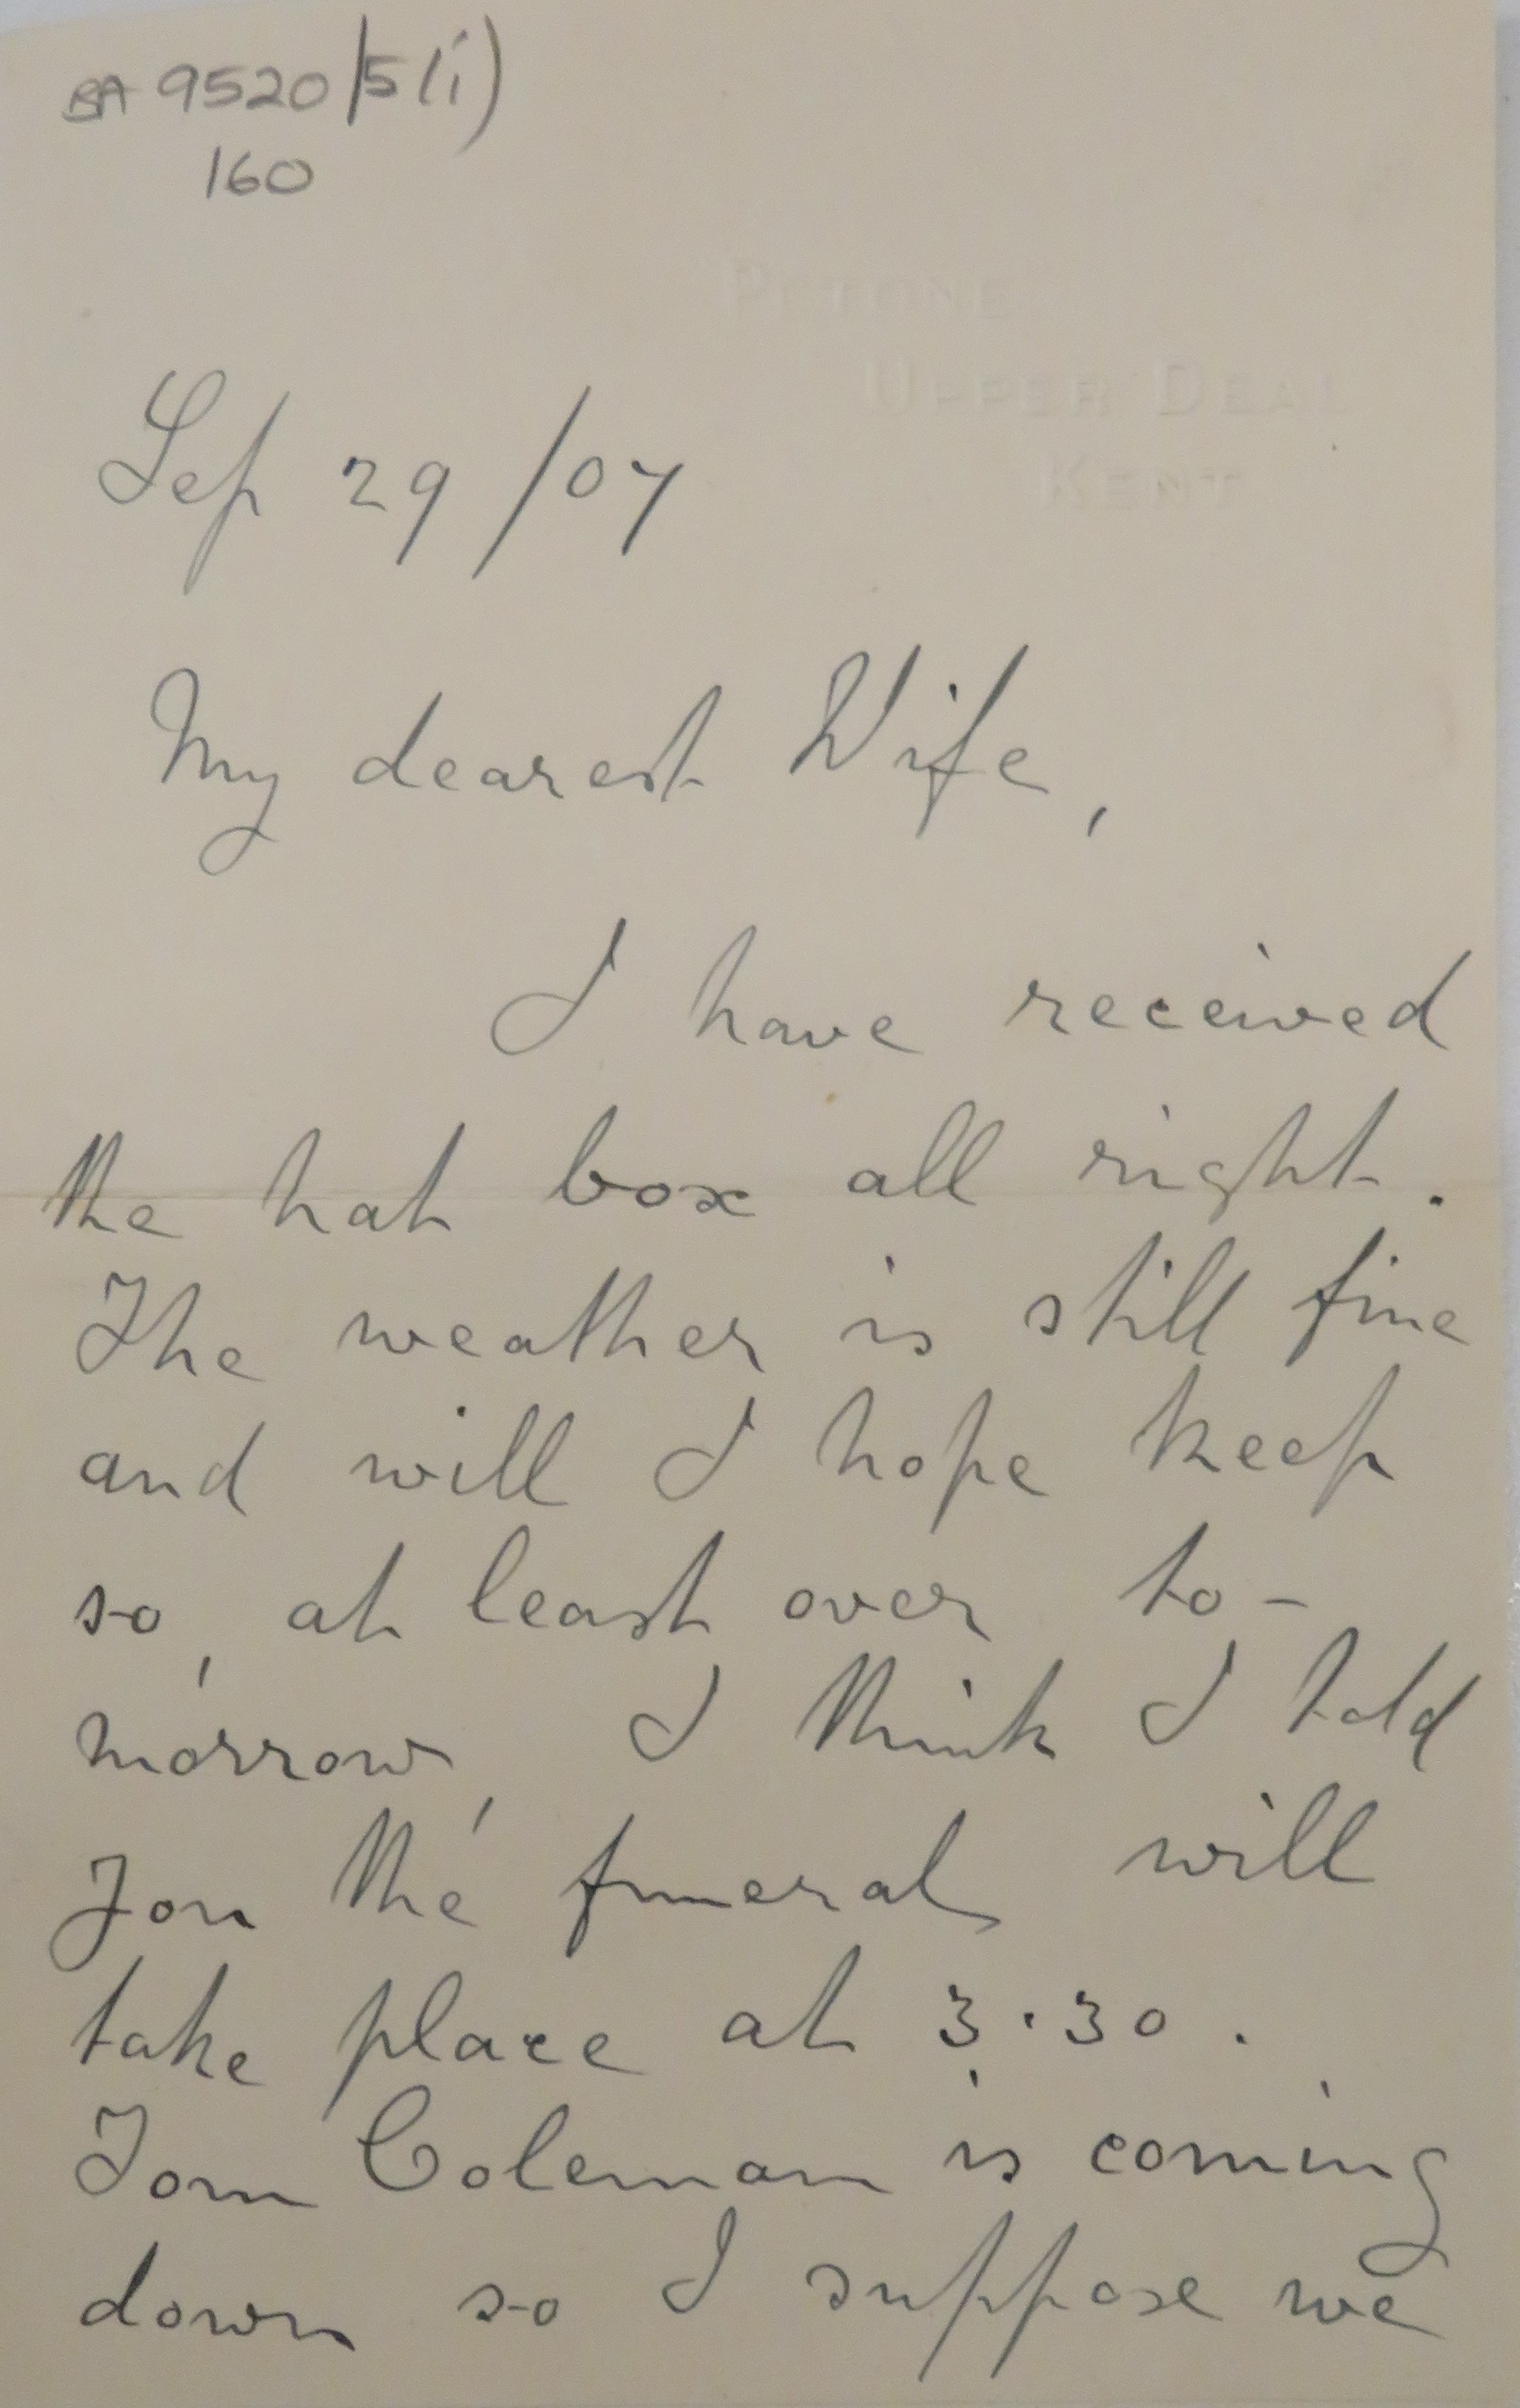 BA 9520/5(i)
160
PETONE
UPPER DEAL
KENT
Sep 29/07
My dearest Wife,
I have received
the hat box all right.
The weather is still fine
and will I hope keep
so, at least over to-
morrow, I think I told
you the funeral will
take place at 3.30.
Tom Coleman is coming
down so I suppose we